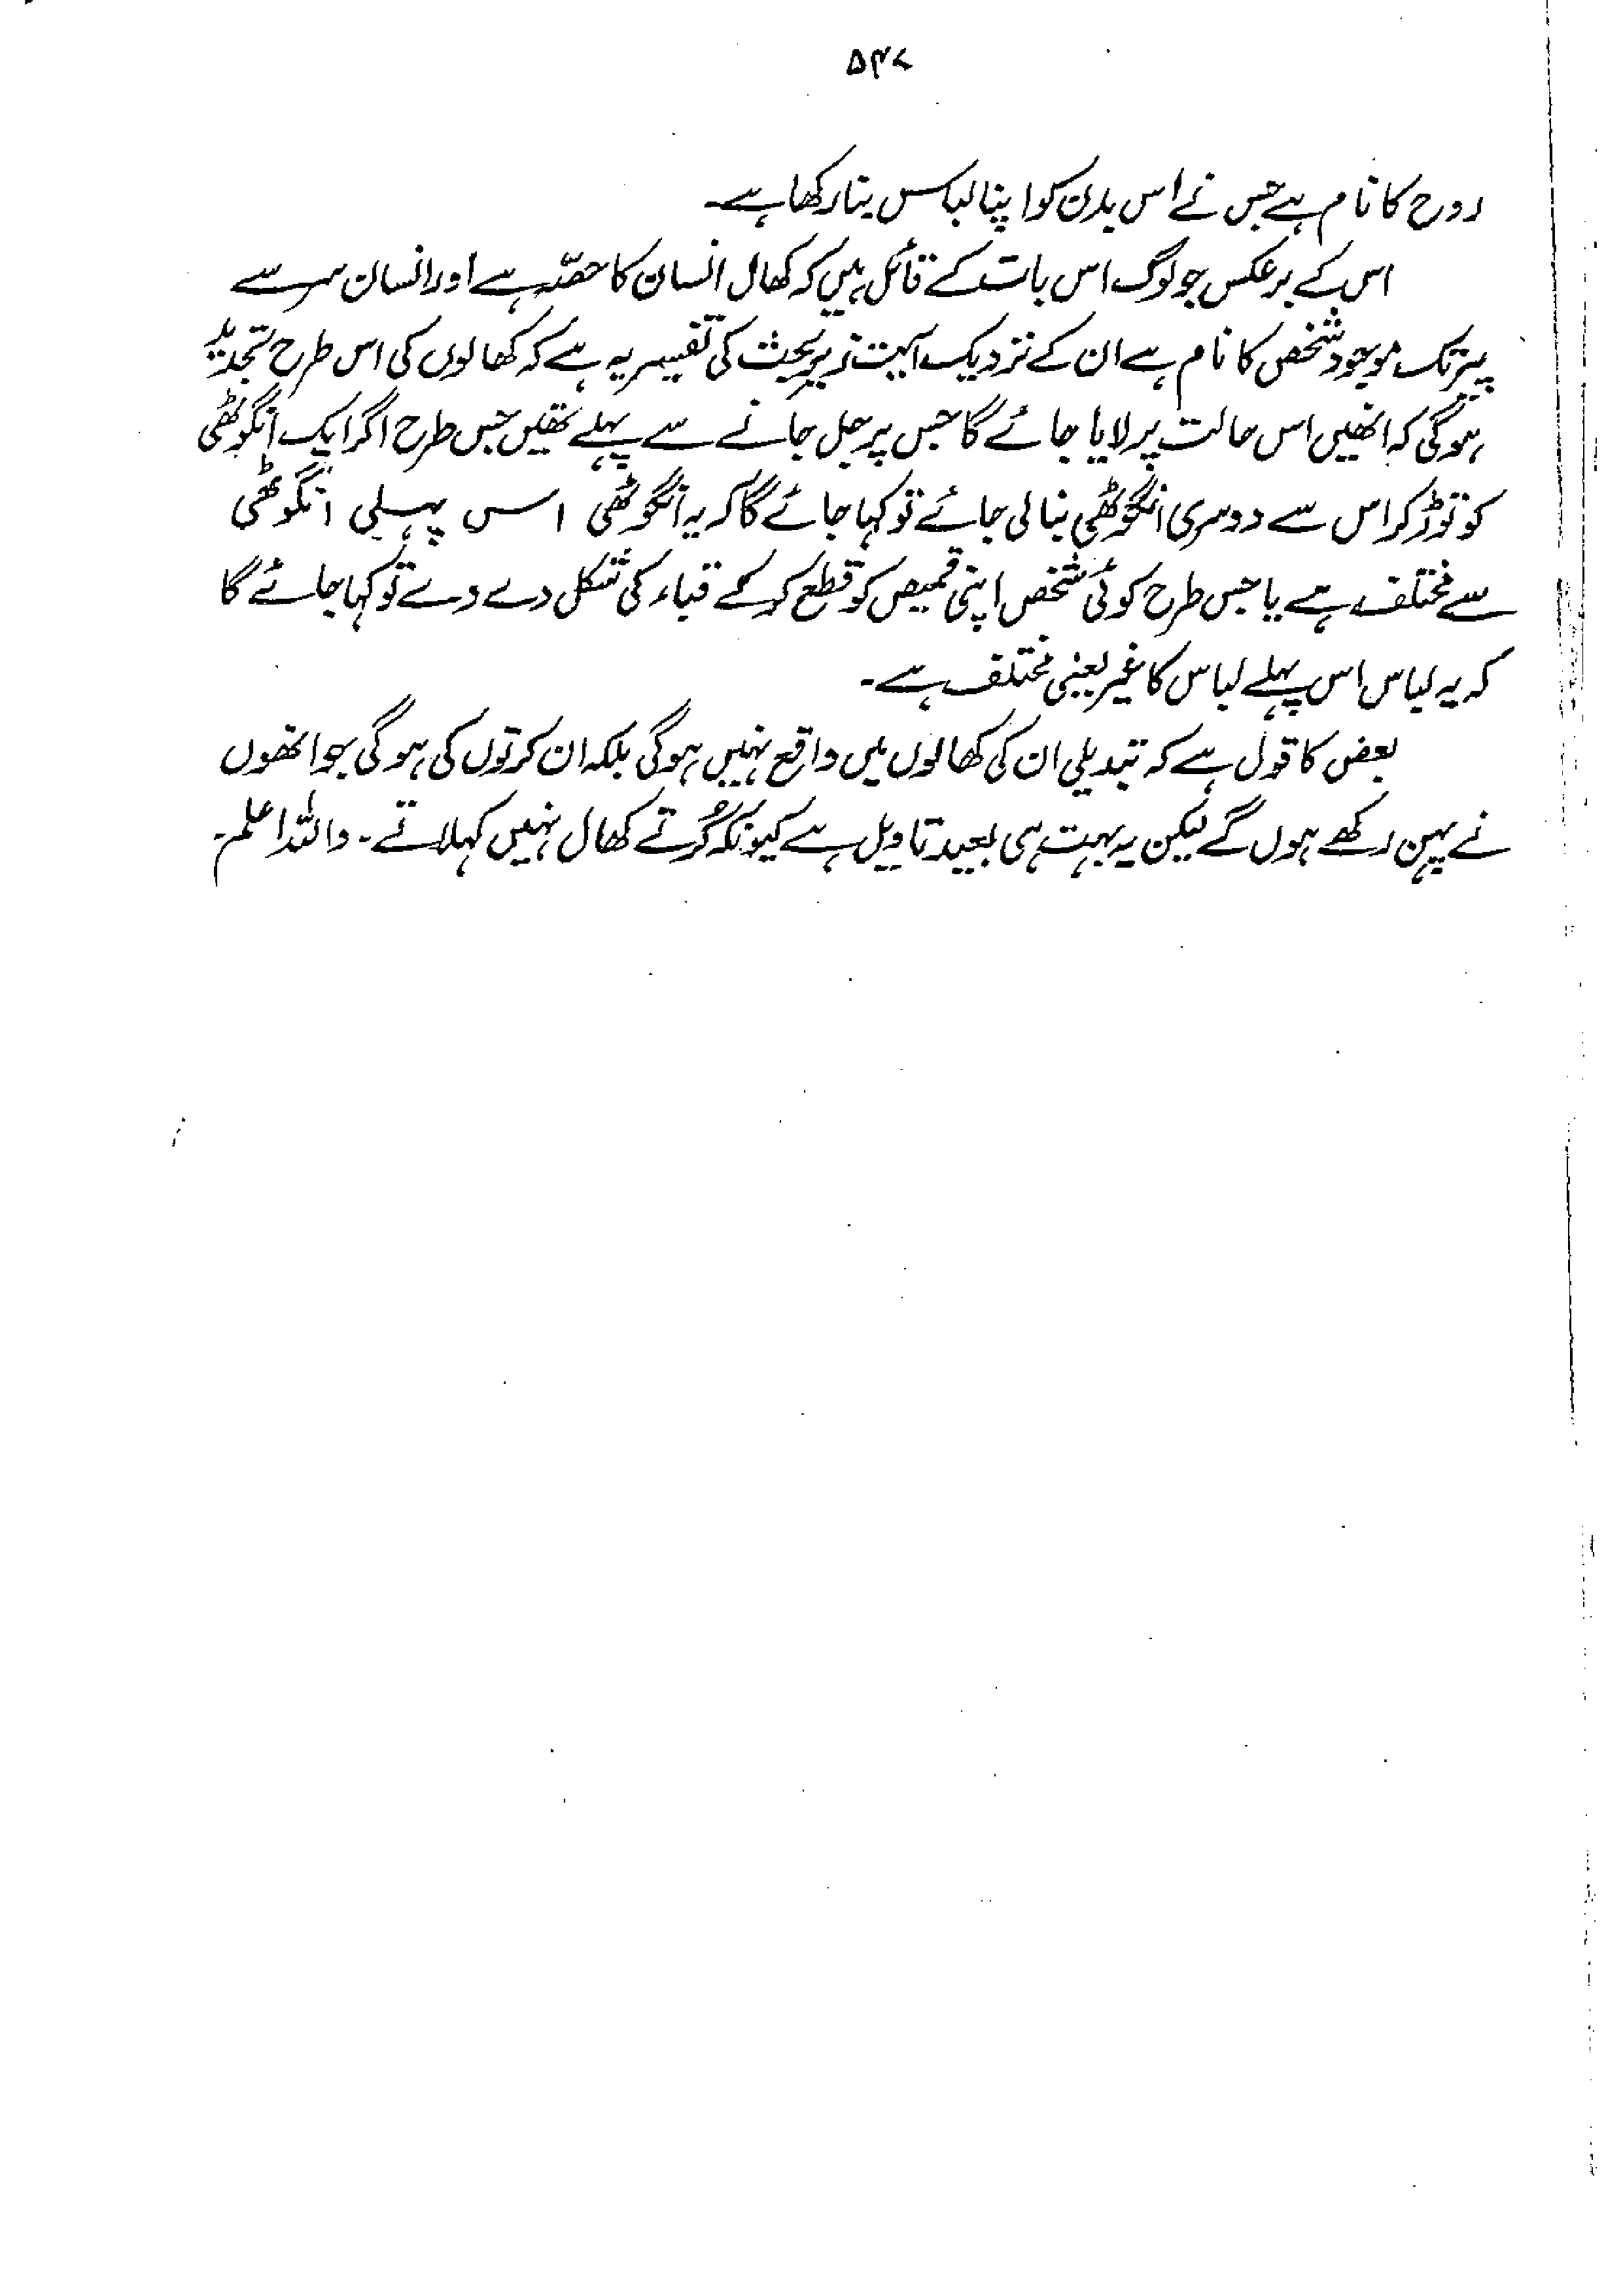 ۵۴۷
روح کا نام ہے جس نے اس بدن کو اپنا لباس بنا رکھا ہے۔
اس کے برعکس جو لوگ اس بات کے قائل ہیں کہ کھال انسان کا حصّہ ہے اور انسان سر سے
پیر تک موجود شخص کا نام ہے ان کے نزدیک آیت زیر بحث کی تفسیر یہ ہے کہ کھالوں کی اس طرح تجدید
ہوگی کہ انھیں اس حالت پر لایا جائے گا جس پر جل جانے سے پہلے تھیں جس طرح اگر ایک انگوٹھی
کو توڑ کر اس سے دوسری انگوٹھی بنالی جائے تو کہا جائے گا کہ یہ انگوٹھی اس پہلی انگوٹھی
سے مختلف ہے یا جس طرح کوئی شخص اپنی قمیص کو قطع کر کے قباء کی شکل دے دے تو کہا جائے گا
کہ یہ لباس اس پہلے لباس کا غیر یعنی مختلف ہے۔
بعض کا قول ہے کہ تبدیلی ان کی کھالوں میں واقع نہیں ہوگی بلکہ ان کرتوں کی ہوگی جو انھوں
نے پہن رکھے ہوں گے لیکن یہ بہت ہی بعید تاویل ہے کیونکہ کُرتے کھال نہیں کہلاتے۔ واللہ اعلم۔